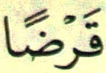 قَرْضًا